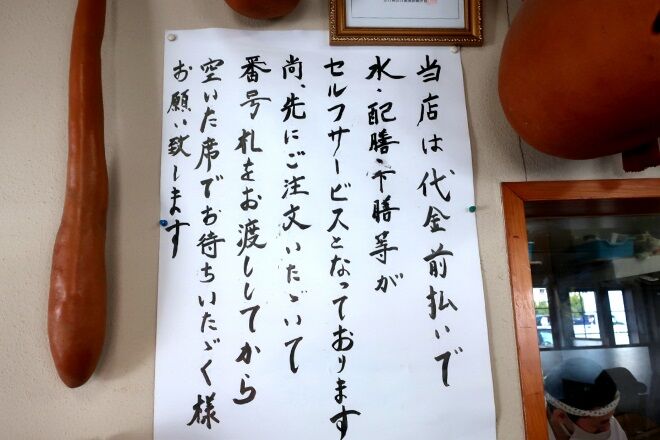 当店は代金前払いで
水・配膳・下膳等が
セルフサービスとなっております
尚、先にご注文いたゞいて
番号札をお渡ししてから
空いた席でお待ちいたゞく様
お願い致します